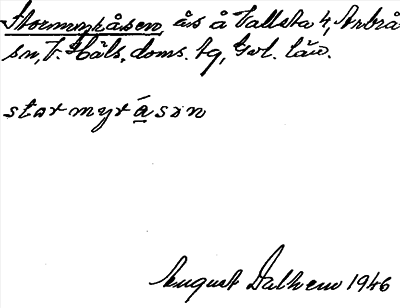 Stormyråsen, ås å Vallsta 4, Arbrå
sn, V. Häls. doms. tg, Gvl. län.
stormyråsȯn
August Dalhem 1946